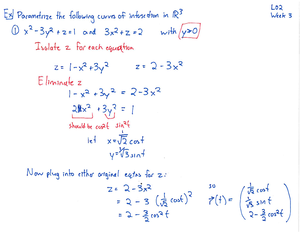 Ex Parametrize the following curves of intersection in ℝ³
L02
Week 3
① x²-3y²+z=1 and 3x²+z=2 with y≥0
Isolate z for each equation
z=1-x²+3y² z=2-3x²
Eliminate z
1-x²+3y² = 2-3x²
2x² + 3y² = 1
should be cos²t sin²t
let x=1/√2 cost
y=1/√3 sint
Now plug into either original eqtns for z:
z = 2-3x²
= 2-3(1/√2 cost)²
= 2-3/2 cos²t
so r(t) = (1/√2 cost
1/√3 sint
2-3/2 cos²t)